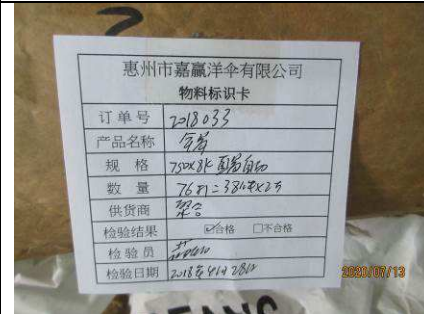 2
惠州市嘉赢洋伞有限公司
物料标识卡
订单号 2018033
产品名称 伞骨
规 格 750x8k 直骨自动
数 量
供货商 聚合
检验结果 ☑合格 □不合格
检验员
检验日期 2018年4月28日
2020/07/13